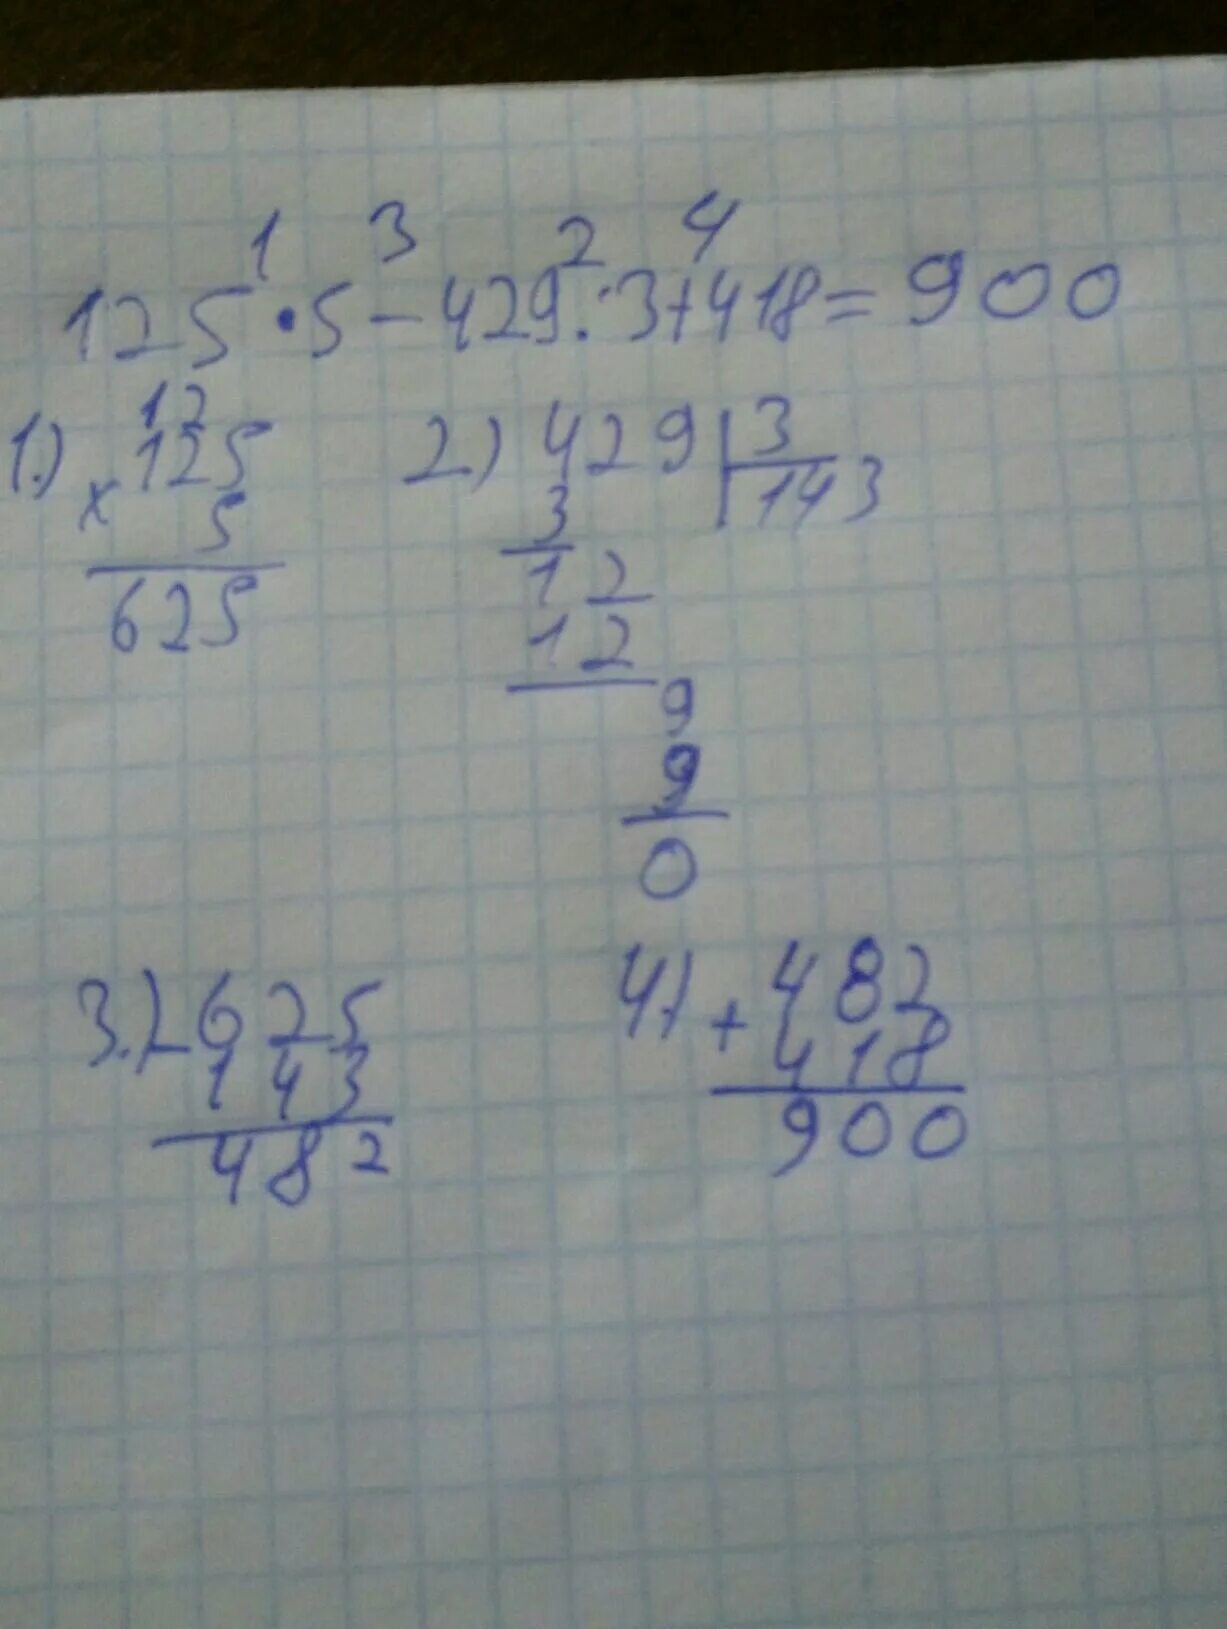 1 3 2 4
125 · 5 - 429 : 3 + 418 = 900
1.) 12
× 125
5
625
2.) 429 | 3
3 143
12
12
9
9
0
3.) - 625
143
482
4) + 482
418
900